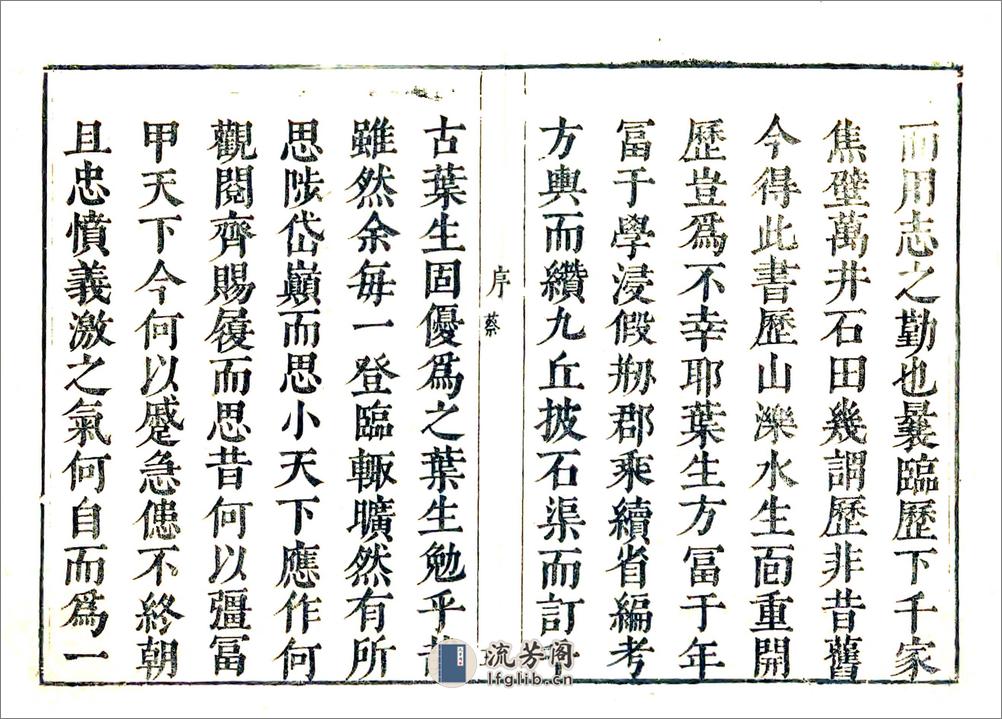 而用志之勤也曩臨歷下千家
焦壁萬井石田幾謂歷非昔舊
今得此書歷山濼水生靣重開
歷豈爲不幸耶葉生方冨于年
冨于學浸假剏郡乘續省編考
方輿而纘九丘披石渠而訂
序 蔡
古葉生固優爲之葉生勉乎
雖然余每一登臨輙曠然有所
思陟岱巔而思小天下應作何
觀閱齊賜履而思昔何以彊冨
甲天下今何以蹙急傯不終朝
且忠憤義激之氣何自而爲一
流芳阁
lfglib.cn